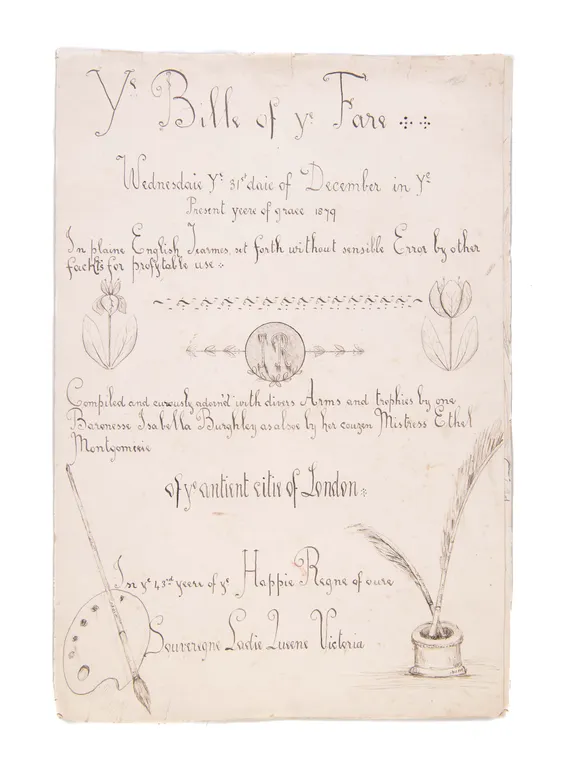 Ye Bille of ye Fare
Wednesdaie Ye 31st daie of December in Ye
Present yeere of grace 1879
In plaine English Tearmes, set forth without sensible Error by other
fackts for profytable use
Compiled and curously adorn'd with divers Arms and trophies by one
Baronesse Isabella Burghley as alsoe by her couzen Mistress Ethel
Montgomerie
of ye antient citie of London
In ye 43rd yeere of ye Happie Regne of oure
Souvereigne Ladie Queene Victoria